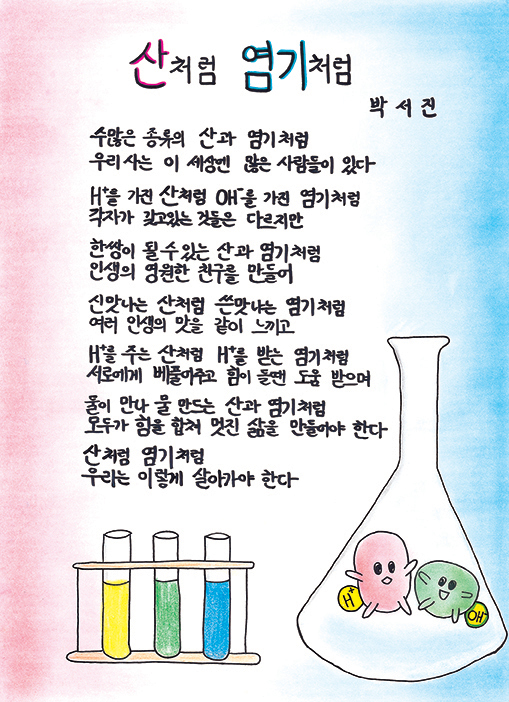 산처럼 염기처럼
박서진
수많은 종류의 산과 염기처럼
우리사는 이 세상엔 많은 사람들이 있다
H⁺를 가진 산처럼 OH⁻를 가진 염기처럼
각자가 갖고있는 것들은 다르지만
한쌍이 될 수 있는 산과 염기처럼
인생의 영원한 친구를 만들어
신맛나는 산처럼 쓴맛나는 염기처럼
여러 인생의 맛을 같이 느끼고
H⁺를 주는 산처럼 H⁺를 받는 염기처럼
서로에게 베풀어주고 힘이 들땐 도움 받으며
둘이 만나 물 만드는 산과 염기처럼
모두가 힘을 합쳐 멋진 삶을 만들어야 한다
산처럼 염기처럼
우리는 이렇게 살아가야 한다
H⁺
OH⁻